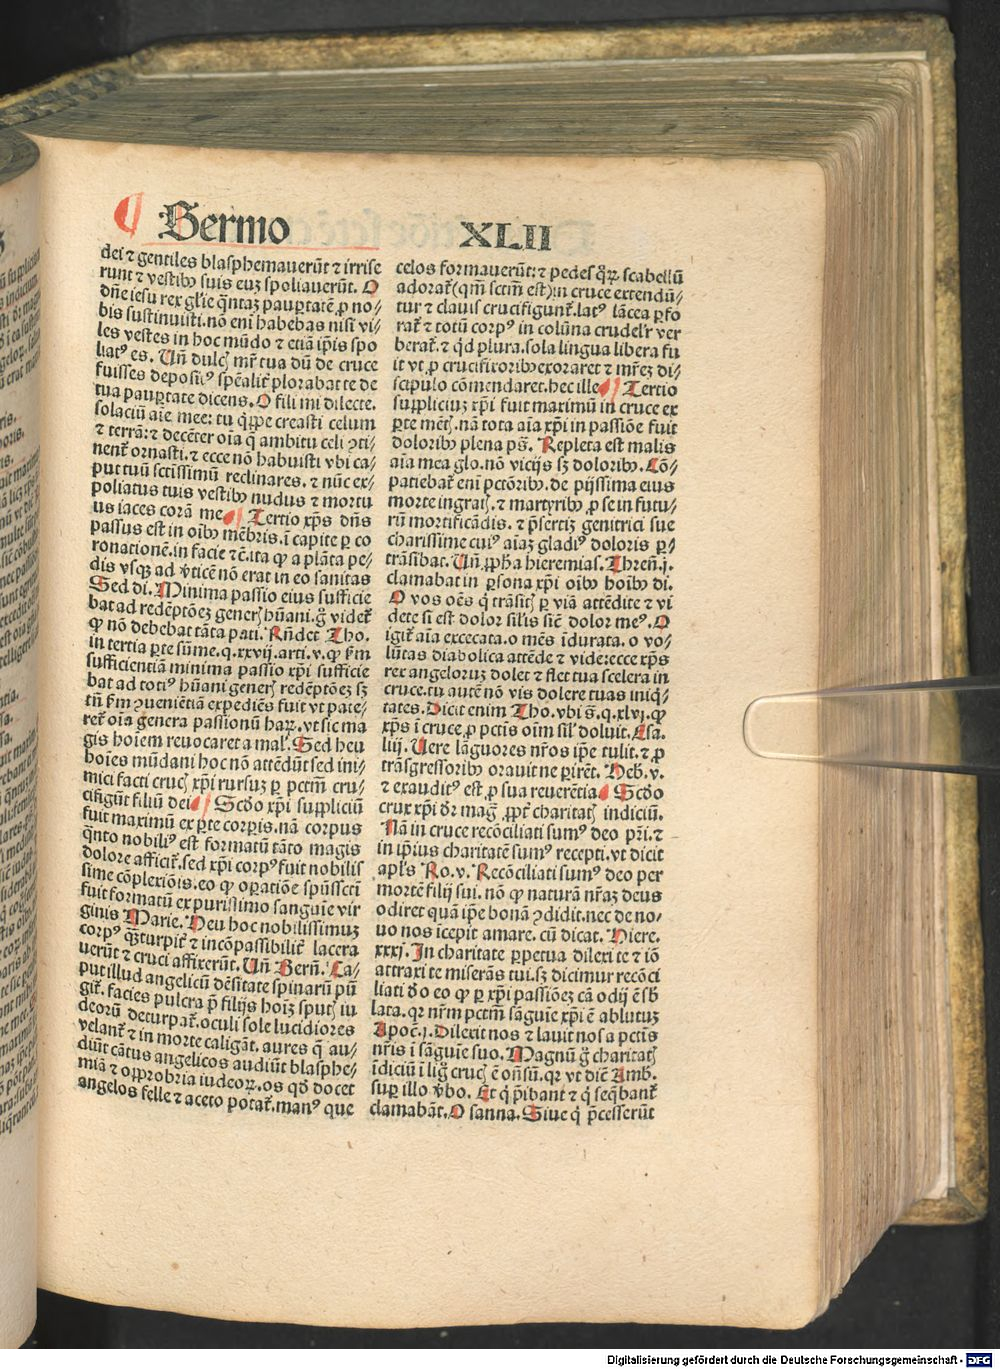 ¶ Sermo XLII
dei ⁊ gentiles blasphemauerūt ⁊ irrise
runt ⁊ vestibꝰ suis euꝫ spoliauerūt. O
dñe iesu rex gl'ie q̄ntaꝫ paupertatē ꝓ no-
bis sustinuisti. nō eni habebas nisi vi-
les vestes in hoc mūdo ⁊ etiā ip̄is spo
liatꝰ es. Uñ dulcꝭ mr̄ tua dū de cruce
fuisses depositꝰ sp̄ealit̄ plorabat te de
tua pauꝑtate dicens. O fili mi dilecte.
solaciū aīe mee: tu q̄ꝑpe creasti celum
⁊ terrā: ⁊ decēter oīa q̄ ambitu celi ꝯti-
nent̄ ornasti. ⁊ ecce nō habuisti vbi ca-
put tuū sctissimū reclinares. ⁊ nūc ex-
poliatus tuis vestibꝰ nudus ⁊ mortu
us iaces corā me ¶ Tertio xp̄s dn̄s
passus est in oībꝰ mēbris. ī capite ꝑ co
ronationē. in facie ⁊c̄. ita ꝙ a plāta pe-
dis vsqꝫ ad v̓ticē nō erat in eo sanitas
Sed di. Minima passio eius sufficie
bat ad redēptōeꝫ generꝭ hūani. g̊ videt̄
ꝙ nō debebat tāta pati. Rn̄det Tho.
in tertia ꝑte sum̄e. q. xxvij. arti. v. ꝙ ẜm
sufficientiā minima passio xp̄i sufficie
bat ad totiꝰ hūani generꝭ redēptōeꝫ sꝫ
tn̄ ẜm ꝯuenientiā expediēs fuit vt pate-
ret̄ oīa genera passionū haꝝ. vt sic ma
gis hoīem reuocaret a malꝭ. Sed heu
hoīes mūdani hoc nō attēdūt sed ini-
mici facti crucꝭ xp̄i rursuꝫ ꝑ pctm̄ cru-
cifigūt filiū dei ¶ Scd̓o xp̄i suppliciū
fuit maximū ex ꝑte corꝑis. nā corpus
q̄nto nobiliꝰ est formatū tāto magis
dolore afficit̄. sed xp̄i corpꝰ fuit nobilis
sime cōplexiōis. eo ꝙ oꝑatiōe spūssc̄ti
fuit formatū ex purissimo sanguīe vir
ginis Marie. Heu hoc nobilissimuꝫ
corpꝰ q̄ꝫ turpit̄ ⁊ incōpassibilit̄ lacera
uerūt ⁊ cruci affixerūt. Uñ Bern̄. Ca-
put illud angelicū dēsitate spinarū pū
git̄. facies pulcra p̄ filijs hoīꝫ sputꝭ iu
deorū deturpat̄. oculi sole lucidiores
velant̄ ⁊ in morte caligāt. aures q̄ au-
diūt cātus angelicos audiūt blasphe-
miā ⁊ opprobria iudeoꝝ. os qd̓ docet
angelos felle ⁊ aceto potat̄. manꝰ que
celos formauerūt: ⁊ pedes q̊ꝝ scabellū
adorat̄ (qm̄ sctm̄ est) in cruce extendū-
tur ⁊ clauis crucifigunt̄. latꝰ lācea ꝑfo
rat̄ ⁊ totū corpꝰ in colūna crudel'r ver
berat̄. ⁊ qd̓ plura. sola lingua libera fu
it vt ꝓ crucifixoribꝰ exoraret ⁊ mr̄eꝫ di-
scipulo cōmendaret. hec ille ¶ Tertio
suppliciuꝫ xp̄i fuit maximū in cruce ex
ꝑte mētꝭ. nā tota aīa xp̄i in passiōe fuit
doloribꝰ plena ps̄. Repleta est malis
aīa mea glo. nō vicijs sꝫ doloribꝰ. Cō-
patiebat̄ eni pctōribꝰ. de pijssima eius
morte ingratꝭ. ⁊ martyribꝰ ꝓ se in futu-
rū mortificādis. ⁊ p̄sertiꝫ genitrici sue
charissime cuiꝰ aīaꝫ gladiꝰ doloris ꝑ-
trāsibat. Uñ ꝓph̄a hieremias. Thren̄. j.
clamabat in ꝑsona xp̄i oībꝰ hoībꝰ di.
O vos oēs q̄ trāsitꝭ ꝑ viā attēdite ⁊ vi
dete si est dolor sil̓is sic̄ dolor meꝰ. O
igit̄ aīa excecata. o mēs īdurata. o vo-
lūtas diabolica attēde ⁊ vide: ecce xp̄s
rex angeloruꝫ dolet ⁊ flet tua scelera in
cruce. tu autē nō vis dolere tuas iniq̄-
tates. Dicit enim Tho. vbi s̄. q. xlvj. ꝙ
xp̄s ī cruce ꝓ pctīs oīm sil̓ doluit. Esa.
liij. Uere lāguores nr̄os ip̄e tulit. ⁊ ꝓ
trāsgressoribꝰ orauit ne ꝑirēt. Heb. v.
⁊ exauditꝰ est ꝓ sua reuerētia ¶ Scd̓o
crux xp̄i dr̄ maḡ ꝓpt̄ charitatꝭ indiciū.
Nā in cruce recōciliati sumꝰ deo pr̄i. ⁊
in ip̄ius charitatē sumꝰ recepti. vt dicit
apl's Ro. v. Recōciliati sumꝰ deo per
mortē filij sui. nō ꝙ naturā nr̄aꝫ deus
odiret quā ip̄e bonā ꝯdidit. nec de no-
uo nos īcepit amare. cū dicat. Hiere.
xxxj. In charitate ꝑpetua dilexi te ⁊ iō
attraxi te miserās tui. sꝫ dicimur recōci
liati d̓o eo ꝙ ꝑ xp̄i passiōeꝫ cā odij ē sb̓
lata. qr nr̄m pctm̄ sāguīe xp̄i ē ablutuꝫ
Apoc̄. j. Dilexit nos ⁊ lauit nos a pctīs
nr̄is ī sāguīe suo. Magnū g̊ charitatꝭ
īdiciū ī lig̊ crucꝭ ē on̄sū. qr vt dic̄ Amb.
suꝑ illo v̓bo. Et q̄ p̄ibant ⁊ q̄ seq̄bant̄
clamabāt. O sanna. Siue q̄ p̄cesserūt
Digitalisierung gefördert durch die Deutsche Forschungsgemeinschaft - DFG